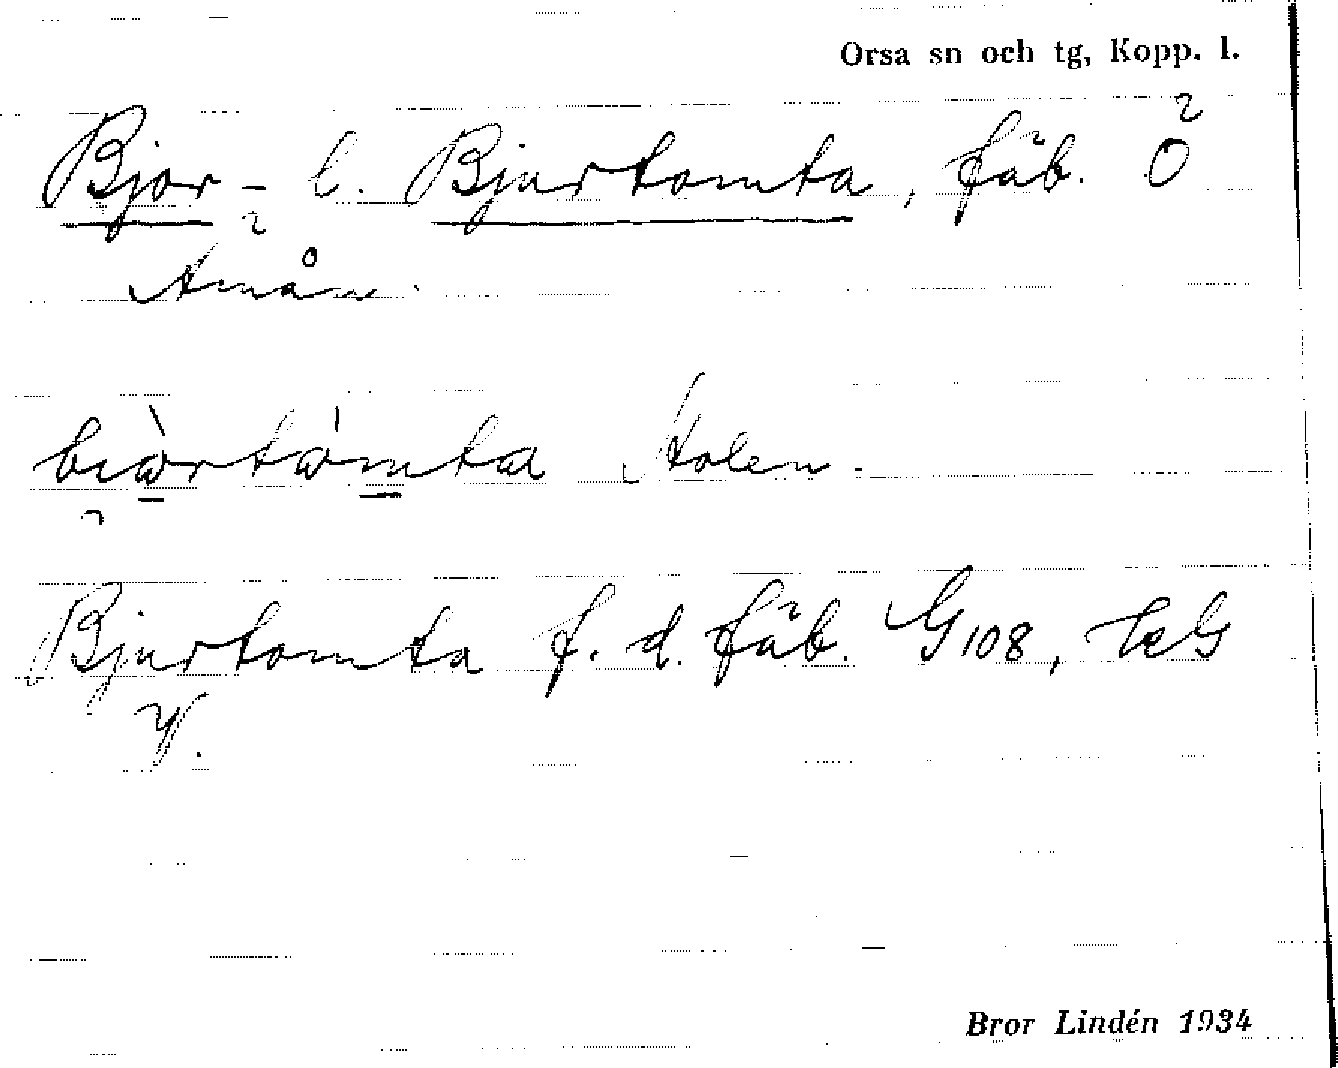 Orsa sn och tg, Kopp. l.
Bjor- l. Bjurtomta, fäb. Ö
Amån.
Stolen.
Bjurtomta f. d. fäb. G108,
Bror Lindén 1934